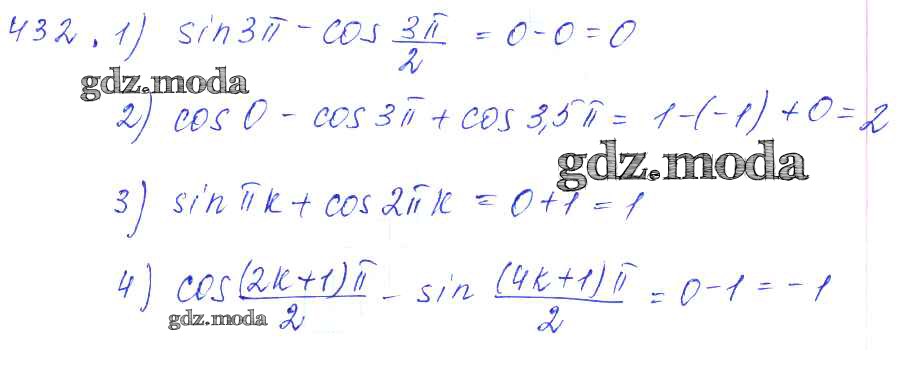 432. 1) sin3π - cos 3π/2 = 0-0=0
gdz.moda
2) cos0 - cos3π + cos3,5π = 1-(-1)+0=2
gdz.moda
3) sinπk + cos2πk = 0+1=1
4) cos (2k+1)π/2 - sin (4k+1)π/2 = 0-1=-1
gdz.moda